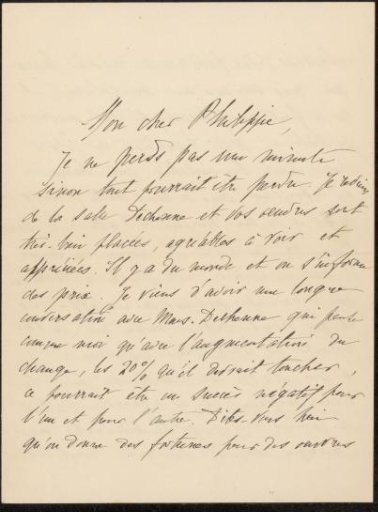 Mon cher Philippe,
Je ne perds pas une minute
sinon tout pourrait être perdu. Je reviens
de la salle et vos sont
très bien placées, agréables à voir et
appréciées. Il y a du monde et on s'informe
des prix. Je viens d'avoir une longue
conversation avec Mons. qui pense
comme moi qu'avec l'augmentation du
change, les 20% qu'il devrait toucher,
ce pourrait être un succès négatif pour
l'un et pour l'autre. Dites-vous bien
qu'on donne des fortunes pour des oeuvres